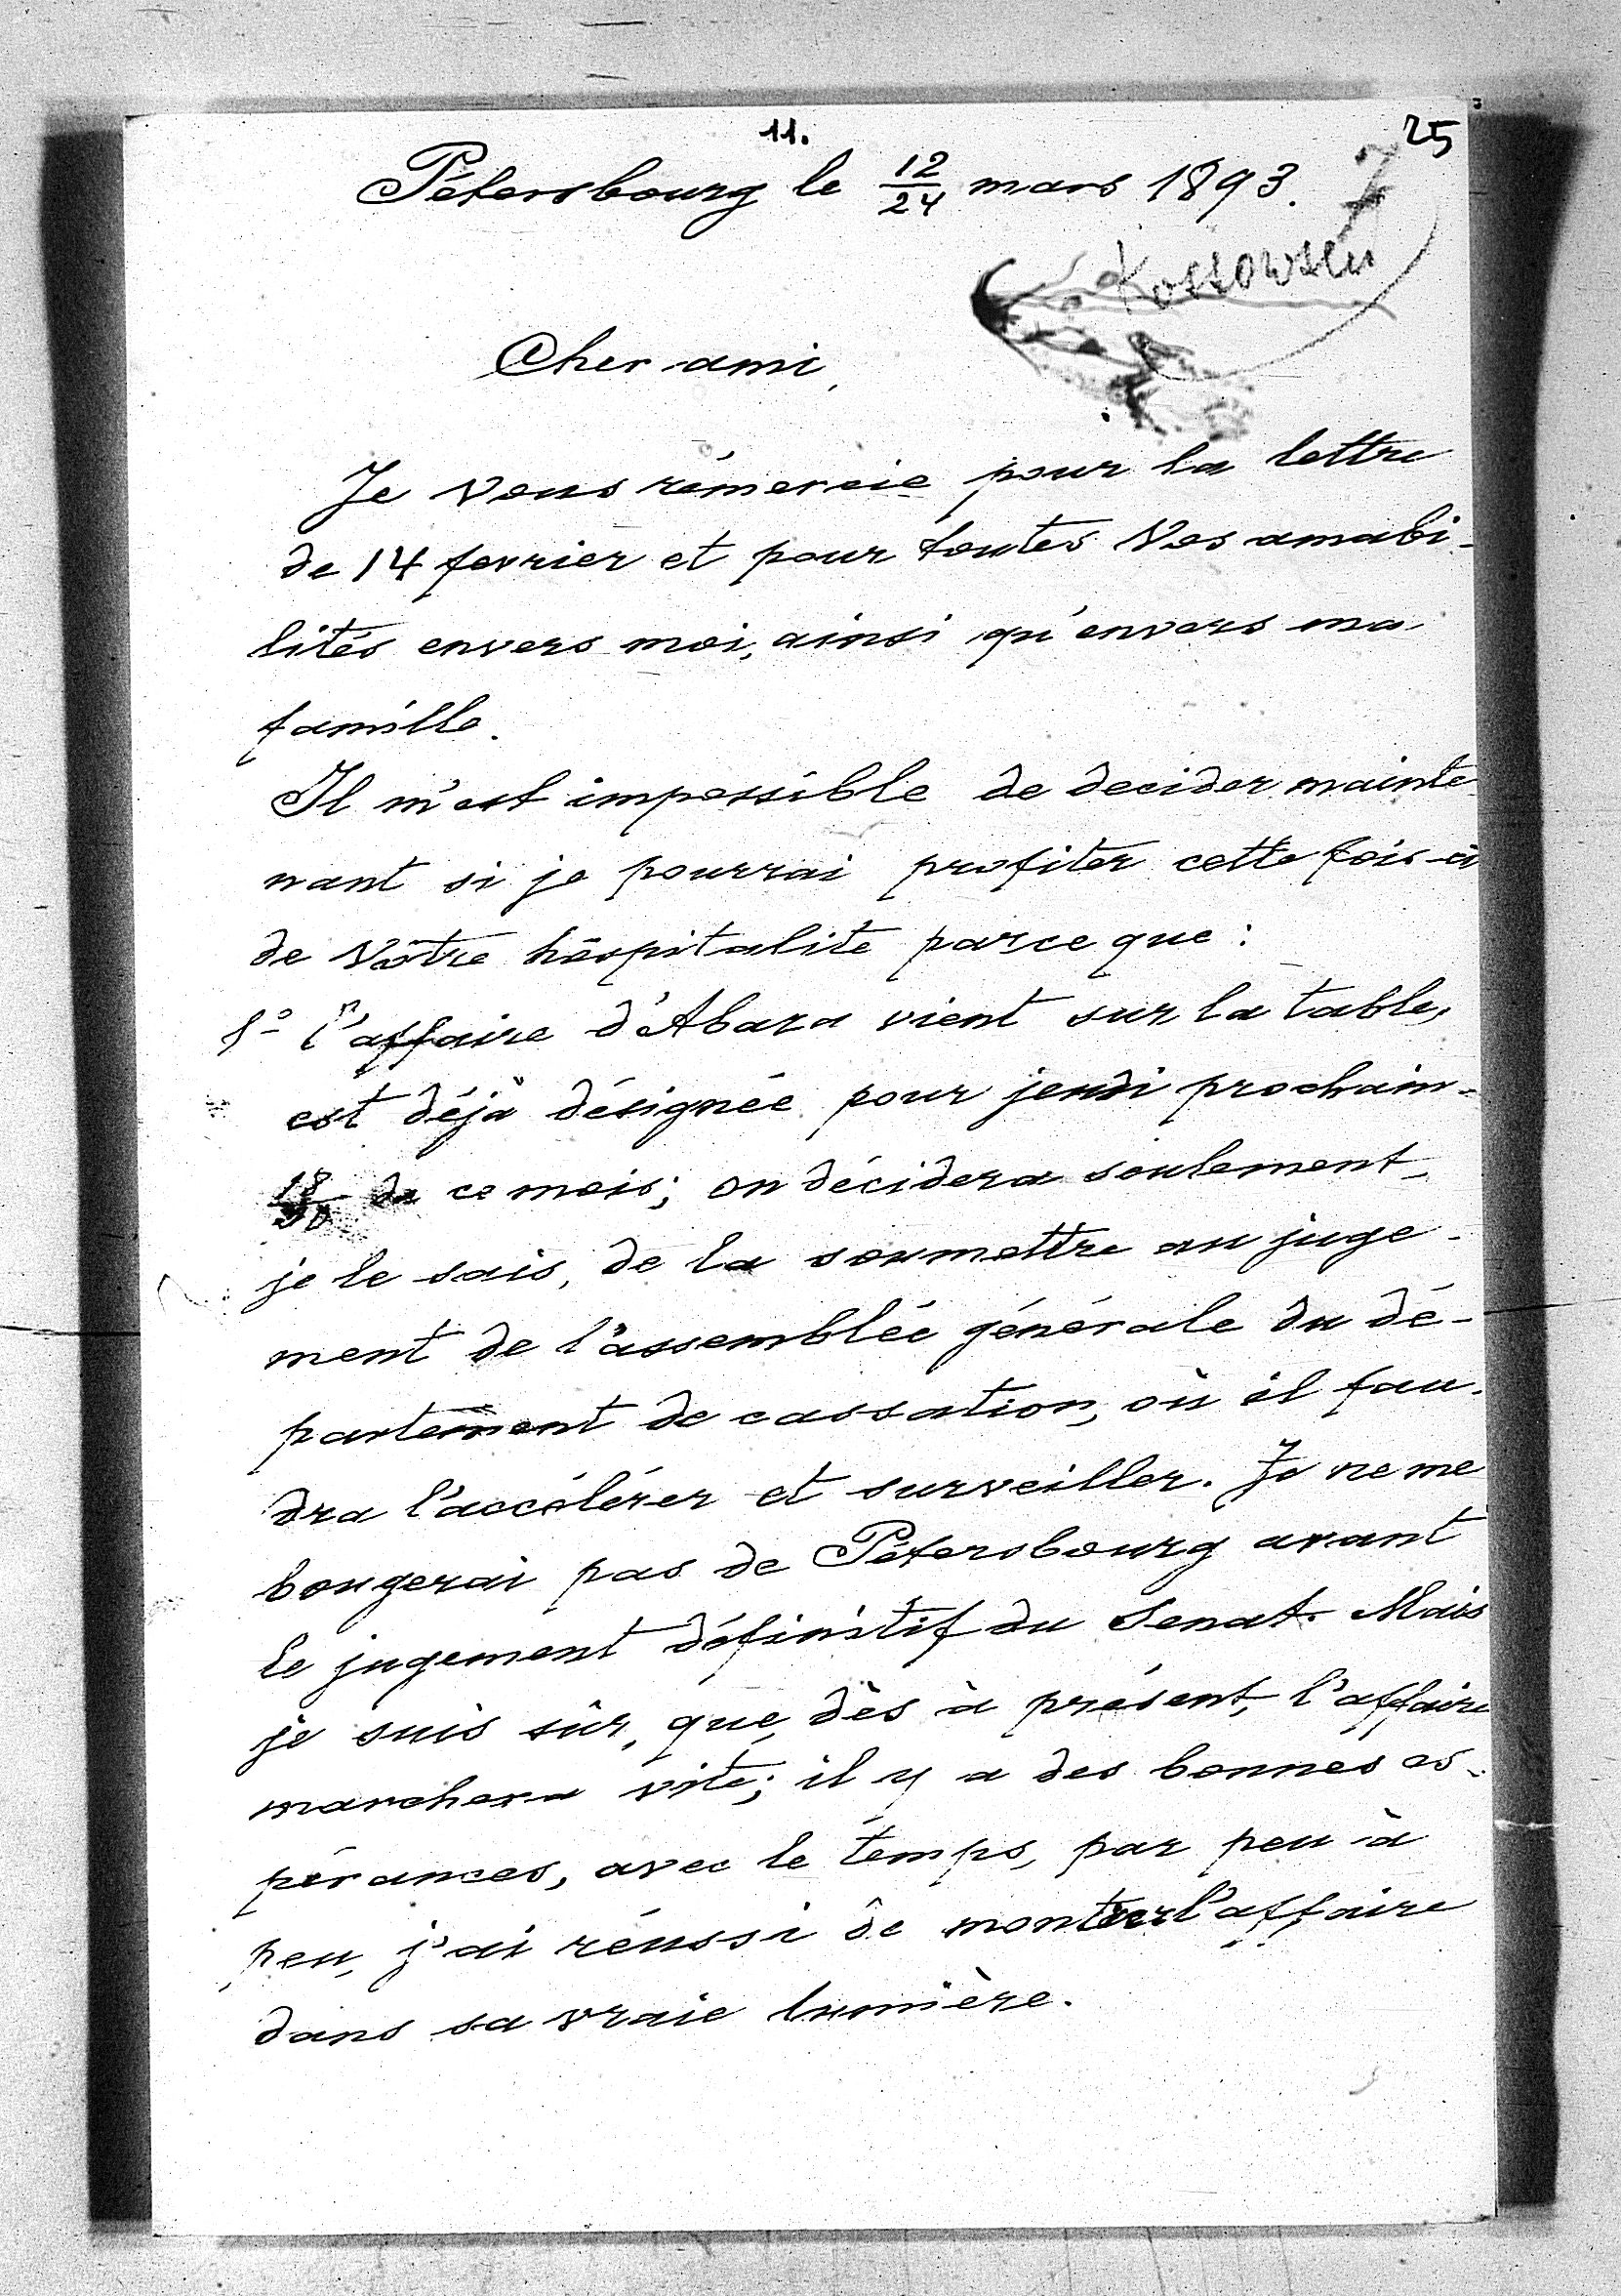 11.
25
Pétersbourg le 12/24 mars 1893.
7
Cher ami,
Je vous rémercie pour la lettre
de 14 fevrier et pour toutes Vos amabi-
lités envers moi, ainsi qu'envers ma
famille.
Il m'est impossible de decider mainte
nant si je pourrai profiter cette fois-ci
de Vôtre hospitalite parce que:
1º l'affaire d'Abaza vient sur la table,
est déjà désignée pour jeudi prochain-
18/30 de ce mois; on décidera seulement,
je le sais, de la soumettre au juge-
ment de l'assemblée générale du dé-
partement de cassation, où il fau-
dra l'accélérer et surveiller. Je ne me
bougerai pas de Pétersbourg avant
le jugement définitif du Senat. Mais
je suis sûr, que, dès à présent, l'affaire
marchera vite; il y a des bonnes es-
pérances, avec le temps, par peu à
peu, j'ai réussi de montrer l'affaire
dans sa vraie lumière.